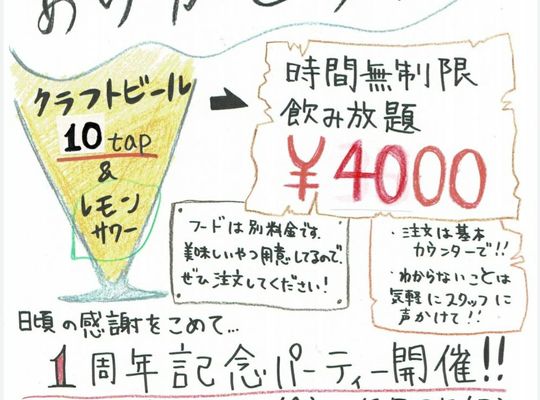 クラフトビール
10 tap
&
レモン
サワー
時間無制限
飲み放題
¥4000
フードは別料金です。
美味しいやつ用意してるので、
ぜひ注文してください!
・注文は基本
カウンターで!!
・わからないことは
気軽にスタッフに
声かけて!!
日頃の感謝をこめて…
1周年記念パーティー開催!!